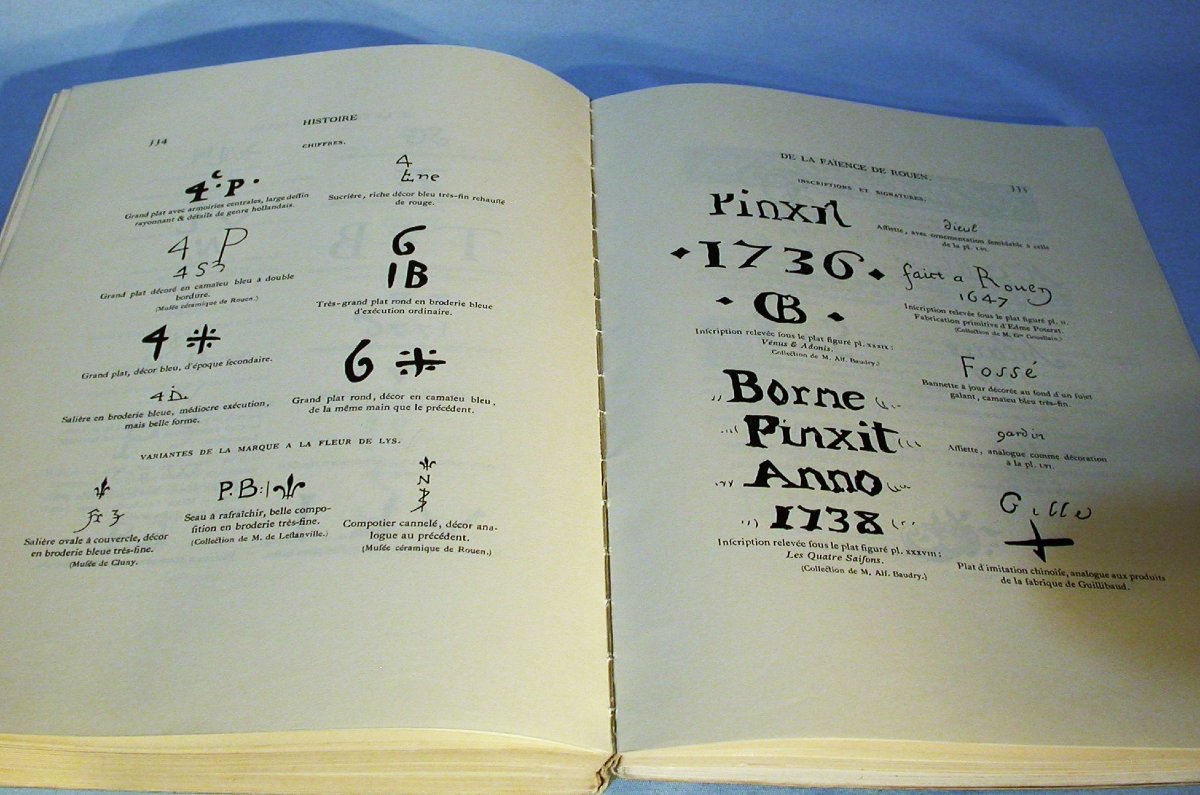 334
HISTOIRE
CHIFFRES.
4 c. P.
Grand plat avec armoiries centrales, large deſſin
rayonnant & détails de genre hollandais.
4
Ene
Sucrière, riche décor bleu très-fin rehauſſé
de rouge.
4 P
4 S
Grand plat décoré en camaïeu bleu à double
bordure.
(Muſée céramique de Rouen.)
6
IB
Très-grand plat rond en broderie bleue
d'exécution ordinaire.
4
Grand plat, décor bleu, d'époque ſecondaire.
6
Grand plat rond, décor en camaïeu bleu,
de la même main que le précédent.
4
Salière en broderie bleue, médiocre exécution,
mais belle forme.
VARIANTES DE LA MARQUE A LA FLEUR DE LYS.
Salière ovale à couvercle, décor
en broderie bleue très-fine.
(Muſée de Cluny.
P.B:
Seau à rafraîchir, belle compo-
ſition en broderie très-fine.
(Collection de M. de Leſtanville.)
N
Compotier cannelé, décor ana-
logue au précédent.
(Muſée céramique de Rouen.)
DE LA FAÏENCE DE ROUEN.
335
INSCRIPTIONS ET SIGNATURES.
Pinxit
1736
GB
Inſcription relevée ſous le plat figuré pl. XXXIX :
Vénus & Adonis.
(Collection de M. Alf. Baudry.)
Borne
Pinxit
Anno
1738
Inſcription relevée ſous le plat figuré pl. XXXVIII :
Les Quatre Saiſons.
(Collection de M. Alf. Baudry.)
dieul
Aſſiette, avec ornementation ſemblable à celle
de la pl. LVI.
faict a Rouen
1647
Inſcription relevée ſous le plat figuré pl. II.
Fabrication primitive d'Edme Poterat.
(Collection de M. Gve Gouellain.)
Fossé
Bannette à jour décorée au fond d'un ſujet
galant, camaïeu bleu très-fin.
gardin
Aſſiette, analogue comme décoration
à la pl. LVI.
Gille
Plat d'imitation chinoiſe, analogue aux produits
de la fabrique de Guillibaud.